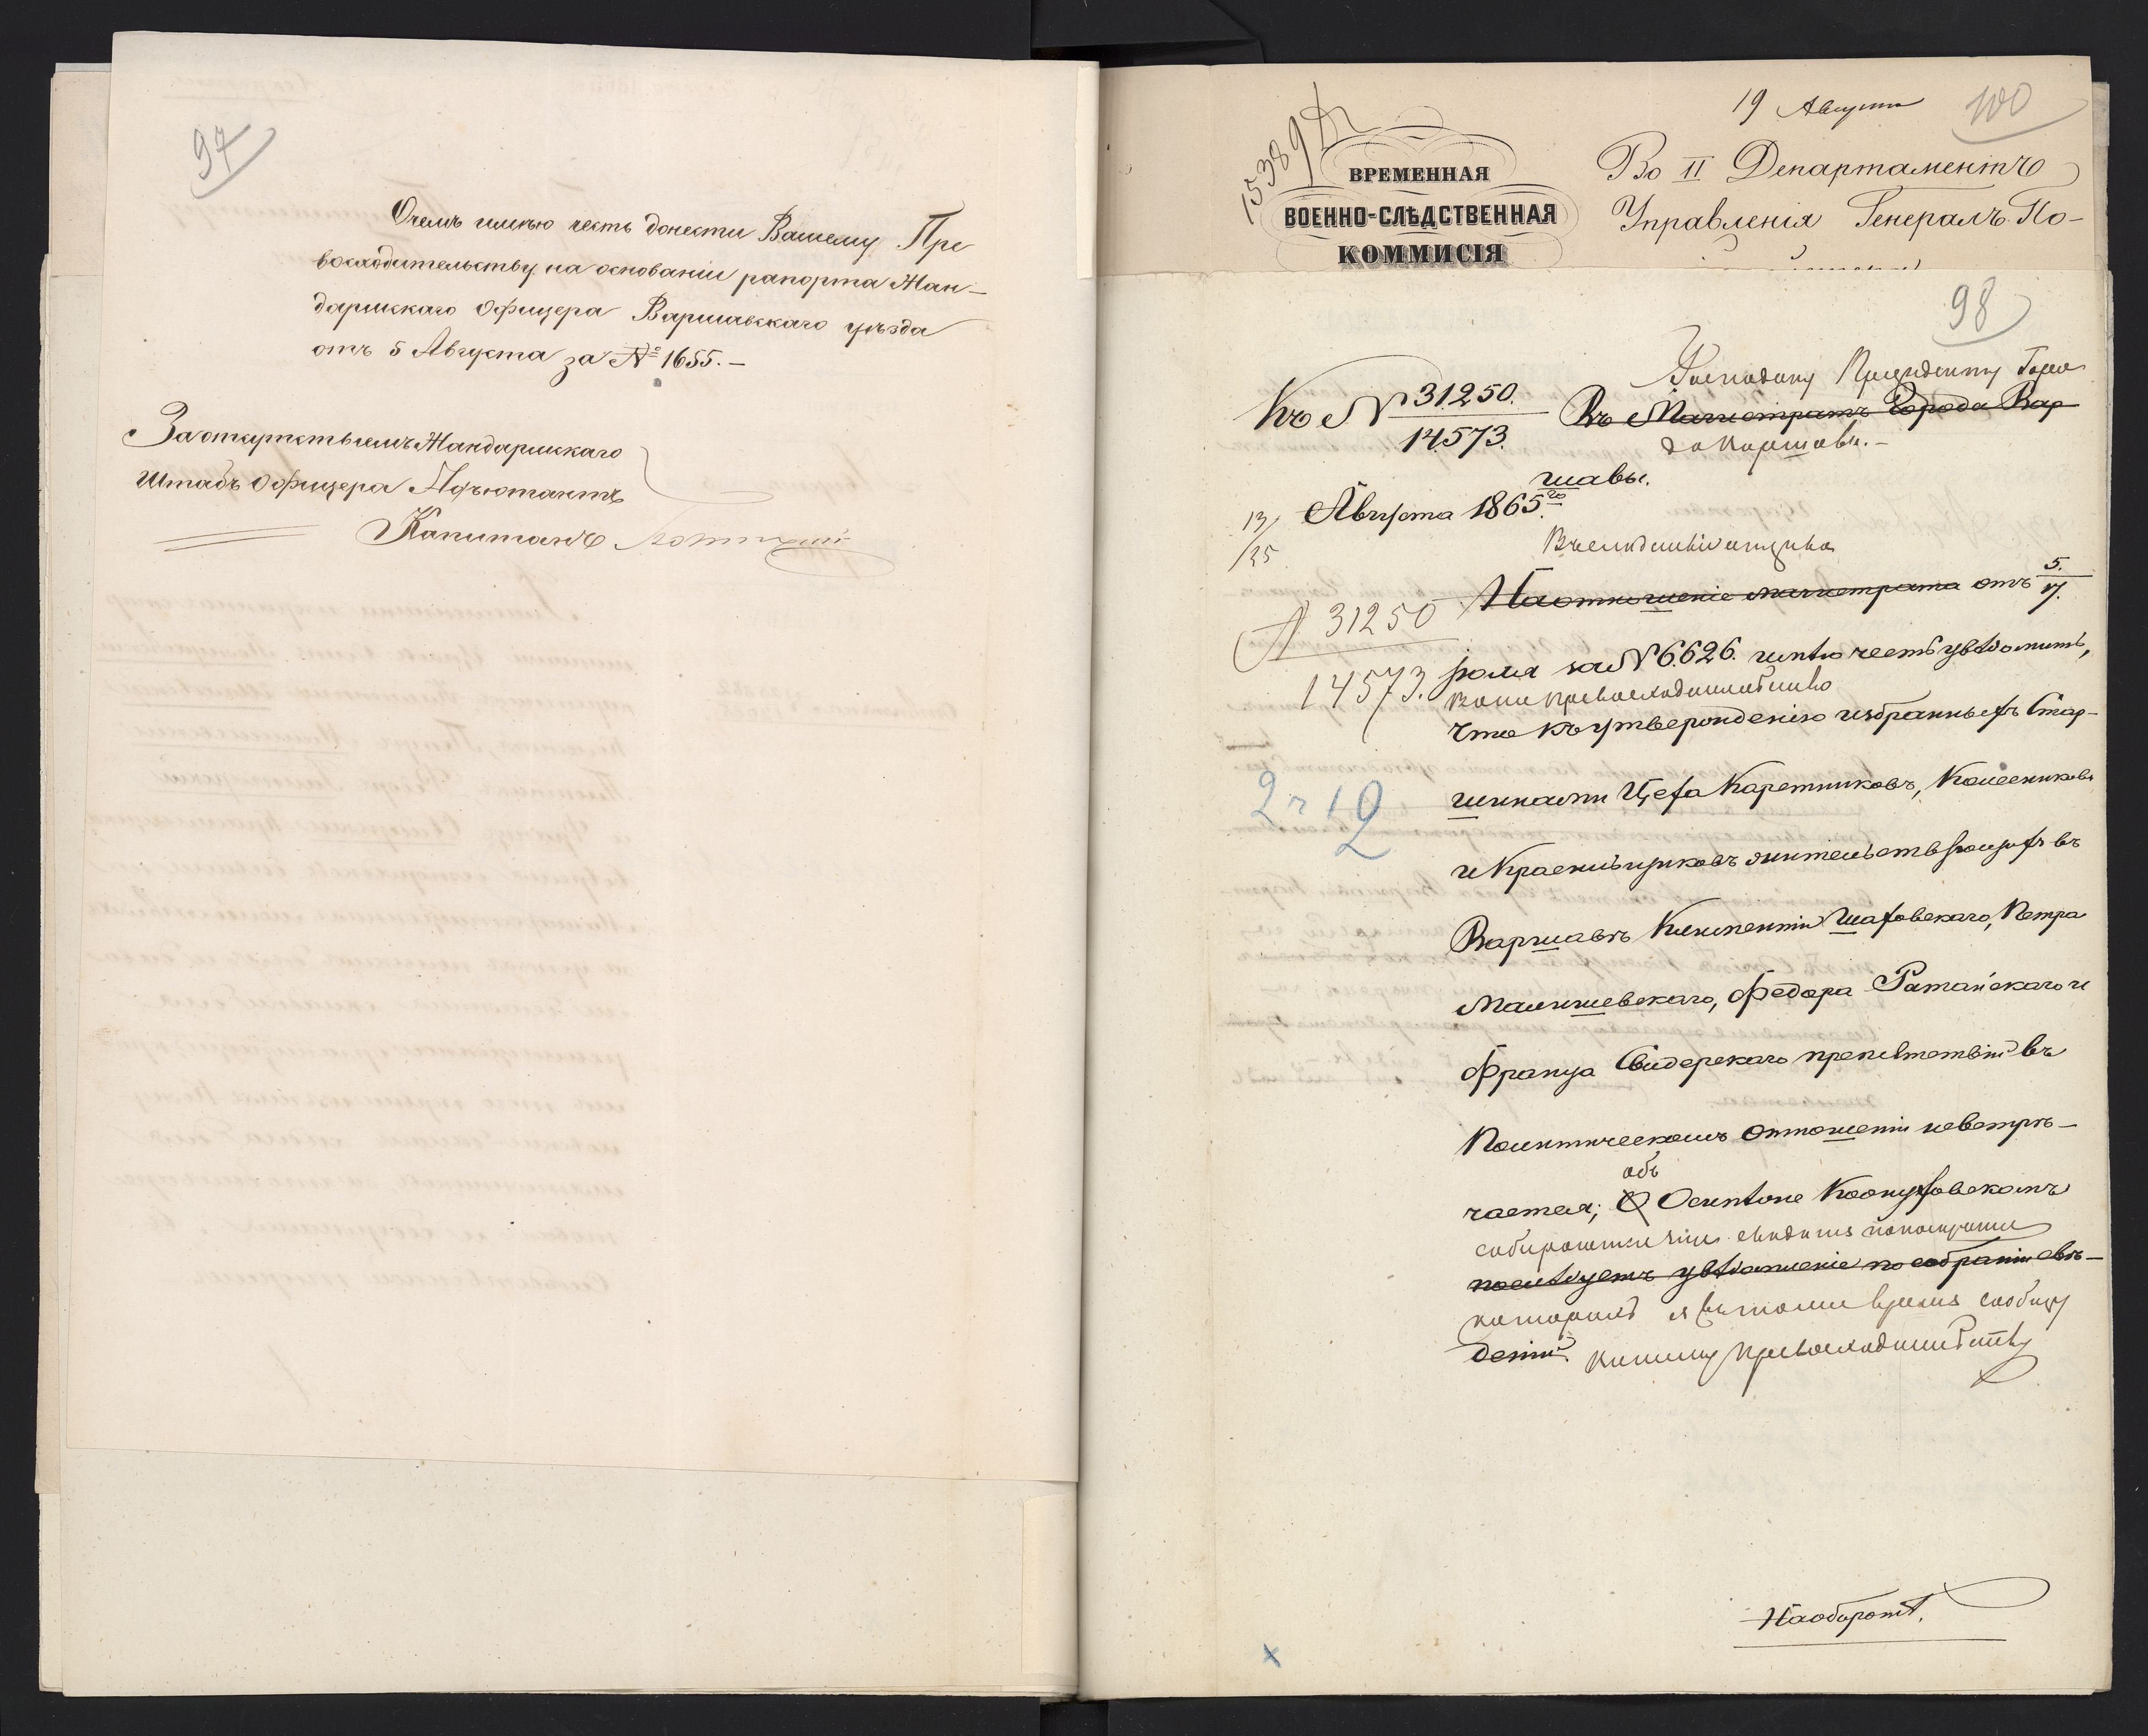 97
О чемъ имѣю честь донести Вашему Пре
восходительству на основаніи рапорта Жан-
дармскаго Офицера Варшавскаго уѣзда
отъ 5 Августа за № 1655.-
За отсутствіемъ Жандармскаго
Штабъ Офицера Адъютантъ
Капитанъ
15389
ВРЕМЕННАЯ
ВОЕННО-СЛѢДСТВЕННАЯ
КОММИСІЯ
19 Августа
100
Во II Департаментъ
Управленія Генералъ По-
98
Господину Президенту Горо
Къ № 31250.
14573.
Въ Магистратъ Города Вар
да Варшавы.-
шавы.
13/25 Августа 1865го
Вслѣдствіе отзыва
На отношеніе магистрата отъ 5./17.
№ 31250
14573.
Іюля за № 6626. имѣю честь увѣдомить,
Ваше Превосходительство
что къ утвержденію избранныхъ Стар-
2 г 12
шинами Цеха Каретниковъ, Колесниковъ
и Красильщиковъ жительствующихъ въ
Варшавѣ Климентія Шаховскаго, Петра
Малишевскаго, Федора Ратайскаго и
Франца Свидерскаго препятствій въ
Политическомъ отношеніи невстрѣ-
объ
чается; О Осипѣ
собираются еще свѣдѣнія по полученіи
послѣдуетъ увѣдомленіе по собраніи свѣ-
которыхъ я въ тоже время сообщу
деній. Вашему Превосходительству
На оборотѣ.